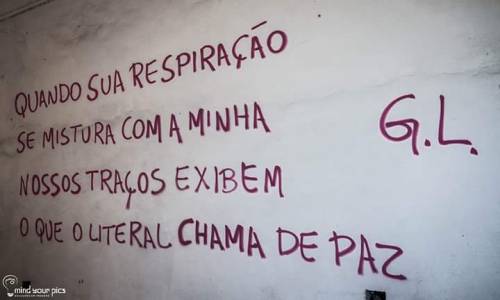 QUANDO SUA RESPIRAÇÃO
SE MISTURA COM A MINHA
NOSSOS TRAÇOS EXIBEM
O QUE O LITERAL CHAMA DE PAZ
G.L.
mind your pics